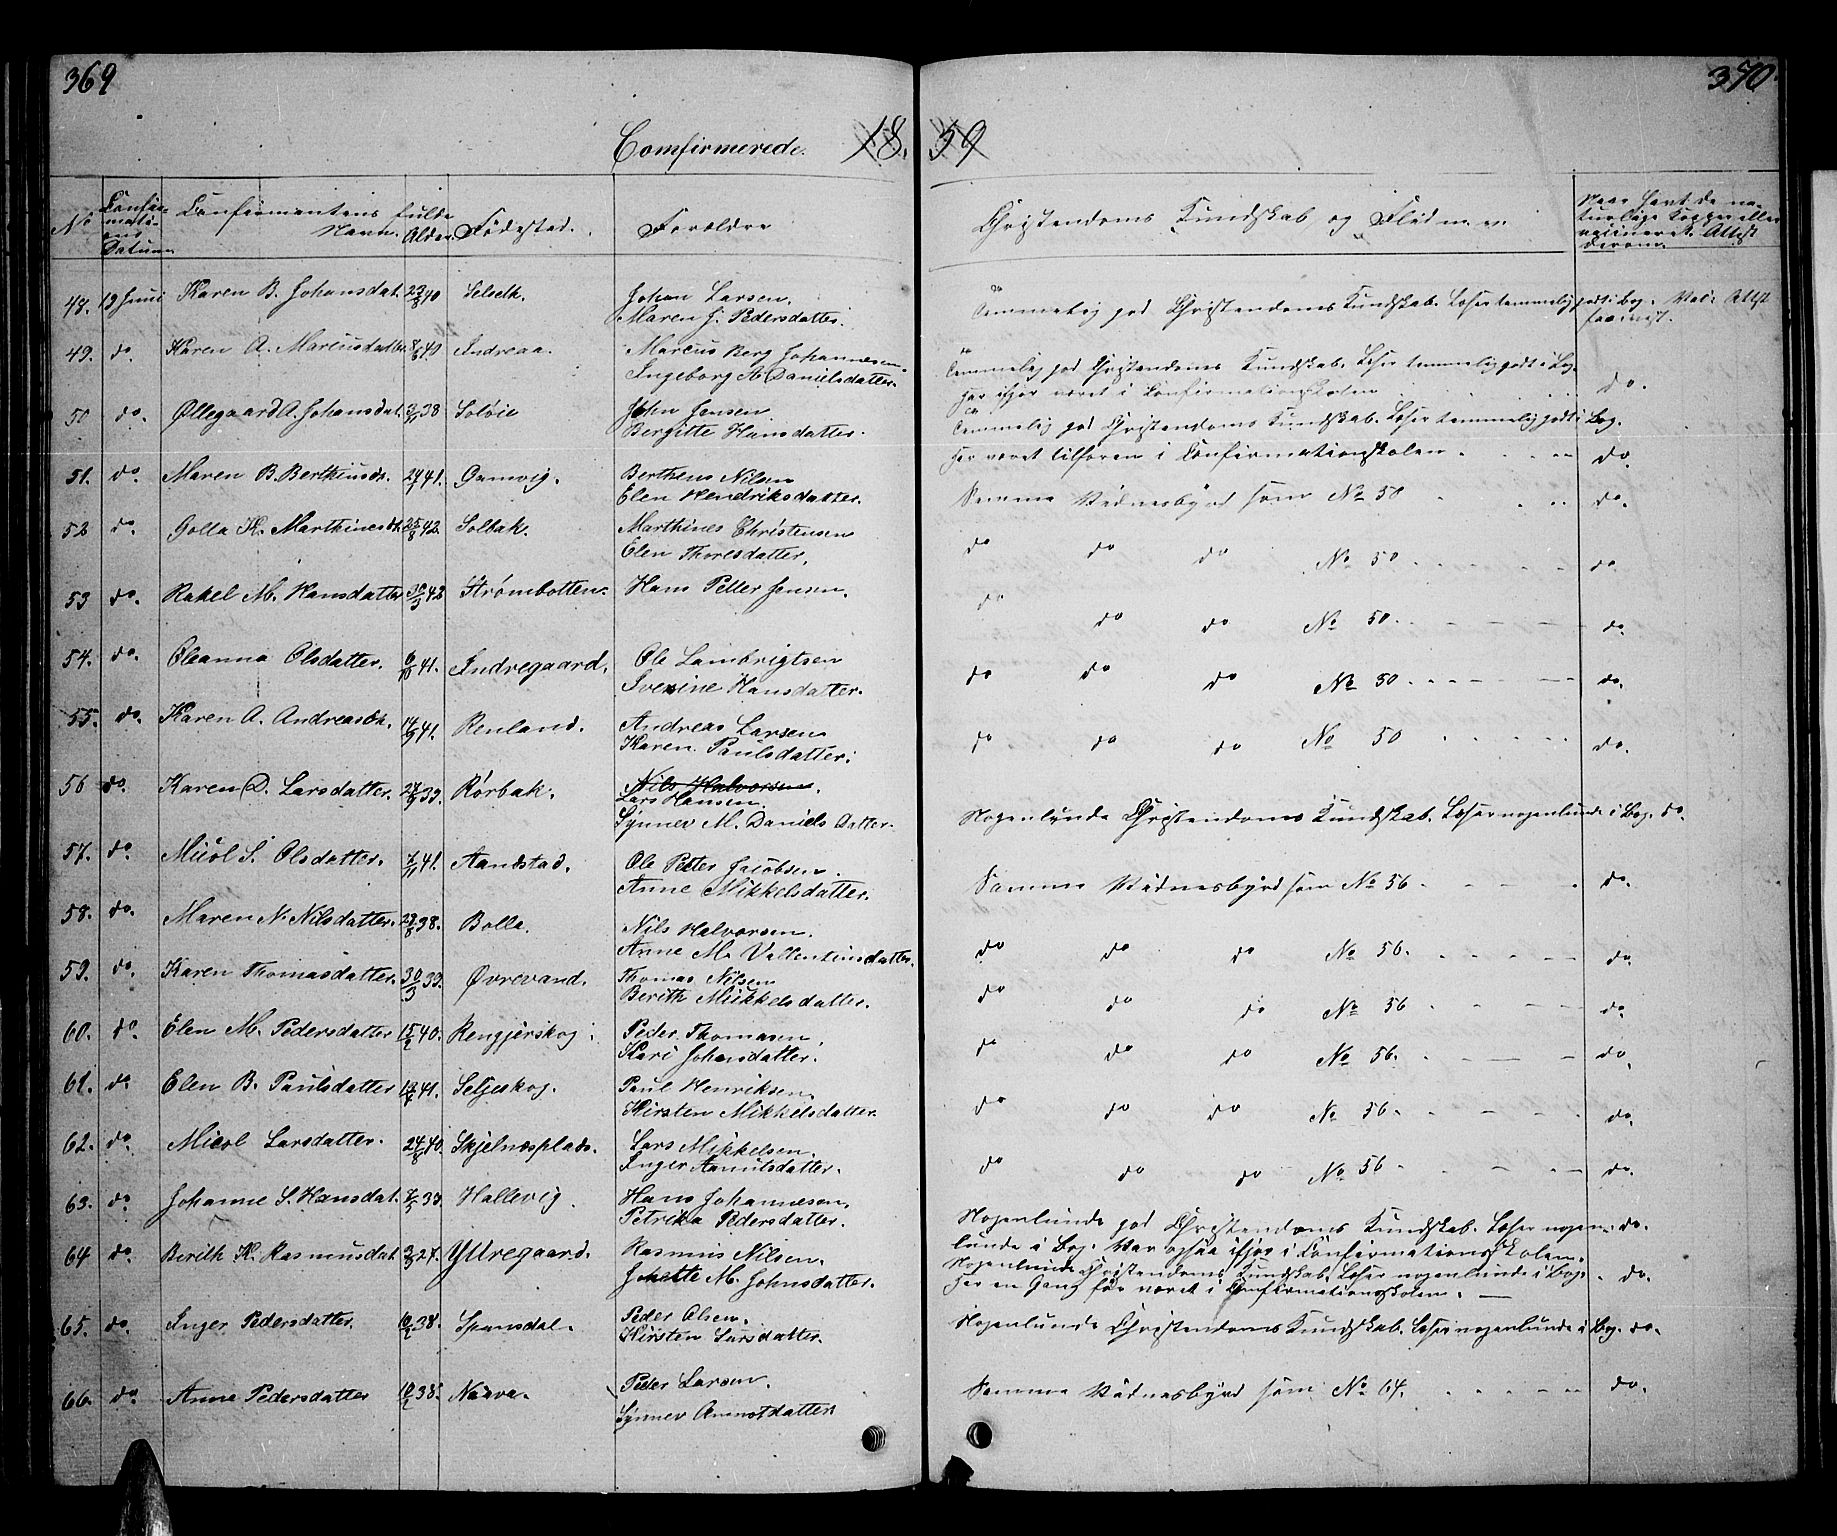 369
370
Comfirmerede 18.59
No Confirmations Datum Confirmantens Navn. fulde Alder. Födested. Forældre Christendoms Kundskab og Flid m. v. Naar havt de naturlige Kopper eller vaccineret. Attest derom.
48. 19 Juni Karen B. Johansdat. 23/8 40 Selseth. Johan Larsen. Temmelig god Christendoms Kundskab. Læser temmelig godt i Bog. Vac: Attest
Maren J. Pedersdatter. forevist.
49. do. Karen A. Marcusdatter 40 Indreaa. Marcus Berg Johannesen. Temmelig god Christendoms Kundskab. Læser temmelig godt i Bog.
Ingeborg A. Danielsdatter. Har ifjor været i Confirmationskolen do.
50 do. Øllegaard A. Johansdat. 38 Soløie John Jensen. Temmelig god Christendoms Kundskab. Læser temmelig godt i Bog.
Bergitte Hansdatter. Har været tilforen i Confirmationskolen. do.
51. do. Maren B. Berthiusdr. 41. Gamvig. Berthens Nilsen Samme Vidnesbyrd som No 50 do.
Elen Hendriksdatter.
52 do. Golla K. Marthinesdt. 25/8 42. Solbak. Marthines Christensen do do do No 50 do.
Elen Thoresdatter.
53 do. Rakel M. Hansdatter 30/3 42 Strømbotten. Hans Petter Jensen. do do do No 50. do.
54. do. Oleanna Olsdatter. 6/10 41. Indregaard. Ole Lambrigtsen do do do No 50 do.
Sverine Hansdatter.
55. do. Karen A. Andreasdt. 14/9 41. Renland. Andreas Larsen do do do No 50 do.
Karen Paulsdatter.
56 do. Karen D. Larsdatter. 39. Rørbak. Nils Halvorsen.
Lars Hansen. Nogenlunde Christendoms Kundskab. Læser nogenlunde i Bog. do.
Synnev M. Daniels Datter.
57. do Micol S. Olsdatter. 7/11 41. Aandstad. Ole Peter Jacobsen. Samme Vidnesbyrd som No 56. do.
Anne Mikkelsdatter.
58. do. Maren N. Nilsdatter. 38. Bolla. Nils Halvorsen. do do do No 56. do.
Anne M. Vallentinsdatter.
59. do. Karen Thomasdatter. 30/3 39. Øvrevand. Thomas Nilsen do do do No 56 do.
Berith Mikkelsdatter.
60. do Elen M. Pedersdatter 15/2 40. Rengjerskog. Peder Thomasen. do do do No 56. do.
Kari Johansdatter.
61. do. Elen B. Paulsdatter 41. Seljeskog. Paul Henriksen. do do do No 56. do.
Kirsten Mikkelsdatter.
62. do. Micol Larsdatter. 24/8 40. Skjelnesplads. Lars Mikkelsen. do do do No 56 do.
Inger Arnutsdatter.
63. do. Johanne S. Hansdat. 37. Hallevig. Hans Johannesen. Nogenlunde god Christendoms Kundskab. Læser nogen- do.
Petrika Pedersdatter. lunde i Bog. Var ogsaa ifjor i Confirmationsskolen.
64 do. Berith K. Rasmusdat. 27. Yttregaard. Rasmus Nilsen. Nogenlunde Christendoms Kundskab. Læser nogenlunde i Bog. do.
Johette M. Johnsdatter. Har en Gang før været i Confirmationsskolen.
65. do. Inger Pedersdatter. 38. Spansdal. Peder Olsen. Nogenlunde Christendoms Kundskab. Læser nogenlunde i Bog. do.
Kirsten Larsdatter.
66. do. Anne Pedersdatter 38. Naava. Peder Larsen. Samme Vidnesbyrd som No 64. do.
Synnev Arnotdatter